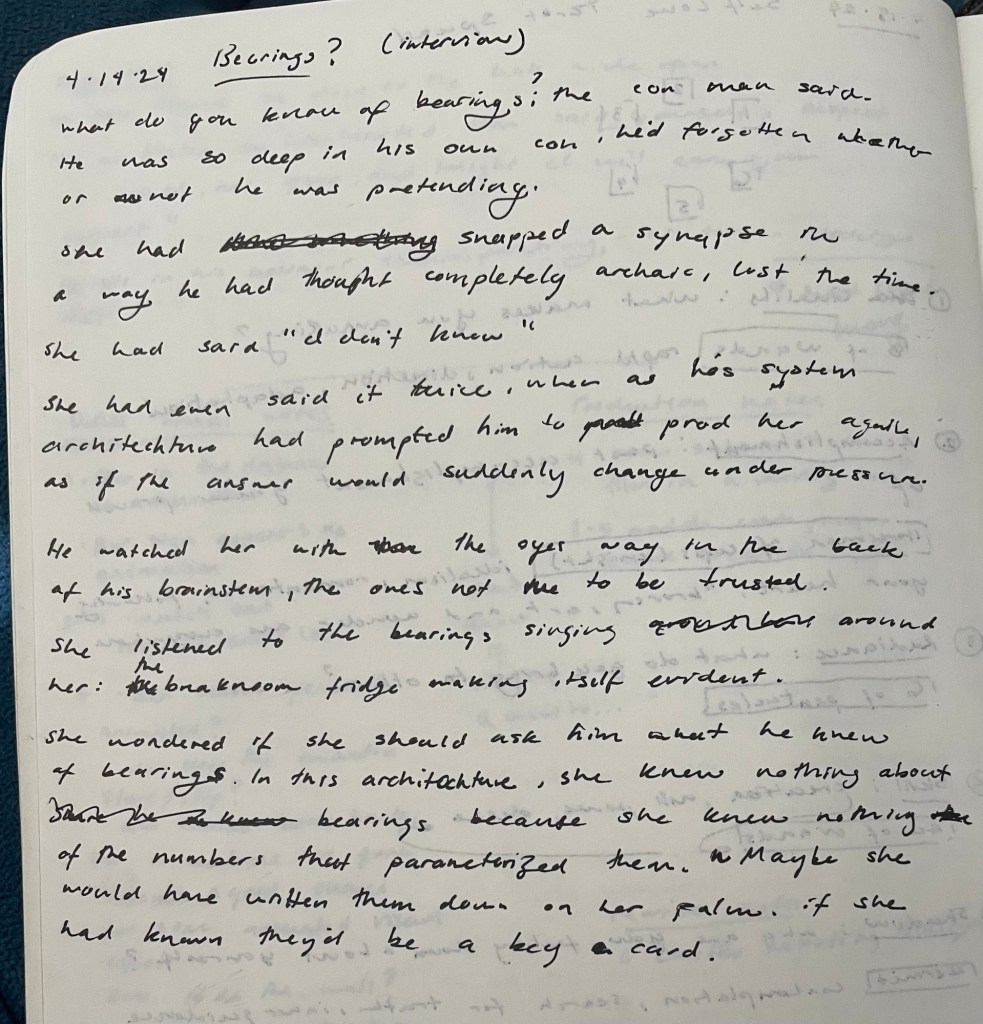 4.14.24 Bearings? (interview)
what do you know of bearings? the con man said.
He was so deep in his own con, he'd forgotten whether
or not he was pretending.
she had snapped a synapse in
a way he had thought completely archaic, lost the time.
she had said "I don't know"
she had even said it twice, when as his system
architechture had prompted him to prod her again,
as if the answer would suddenly change under pressure.
He watched her with the eyes way in the back
of his brainstem, the ones not to be trusted.
She listened to the bearings singing around
her: the breakroom fridge making itself evident.
she wondered if she should ask him what he knew
of bearings. In this architechture, she knew nothing about
bearings because she knew nothing
of the numbers that parameterized them. Maybe she
would have written them down on her palm. if she
had known they'd be a key card.